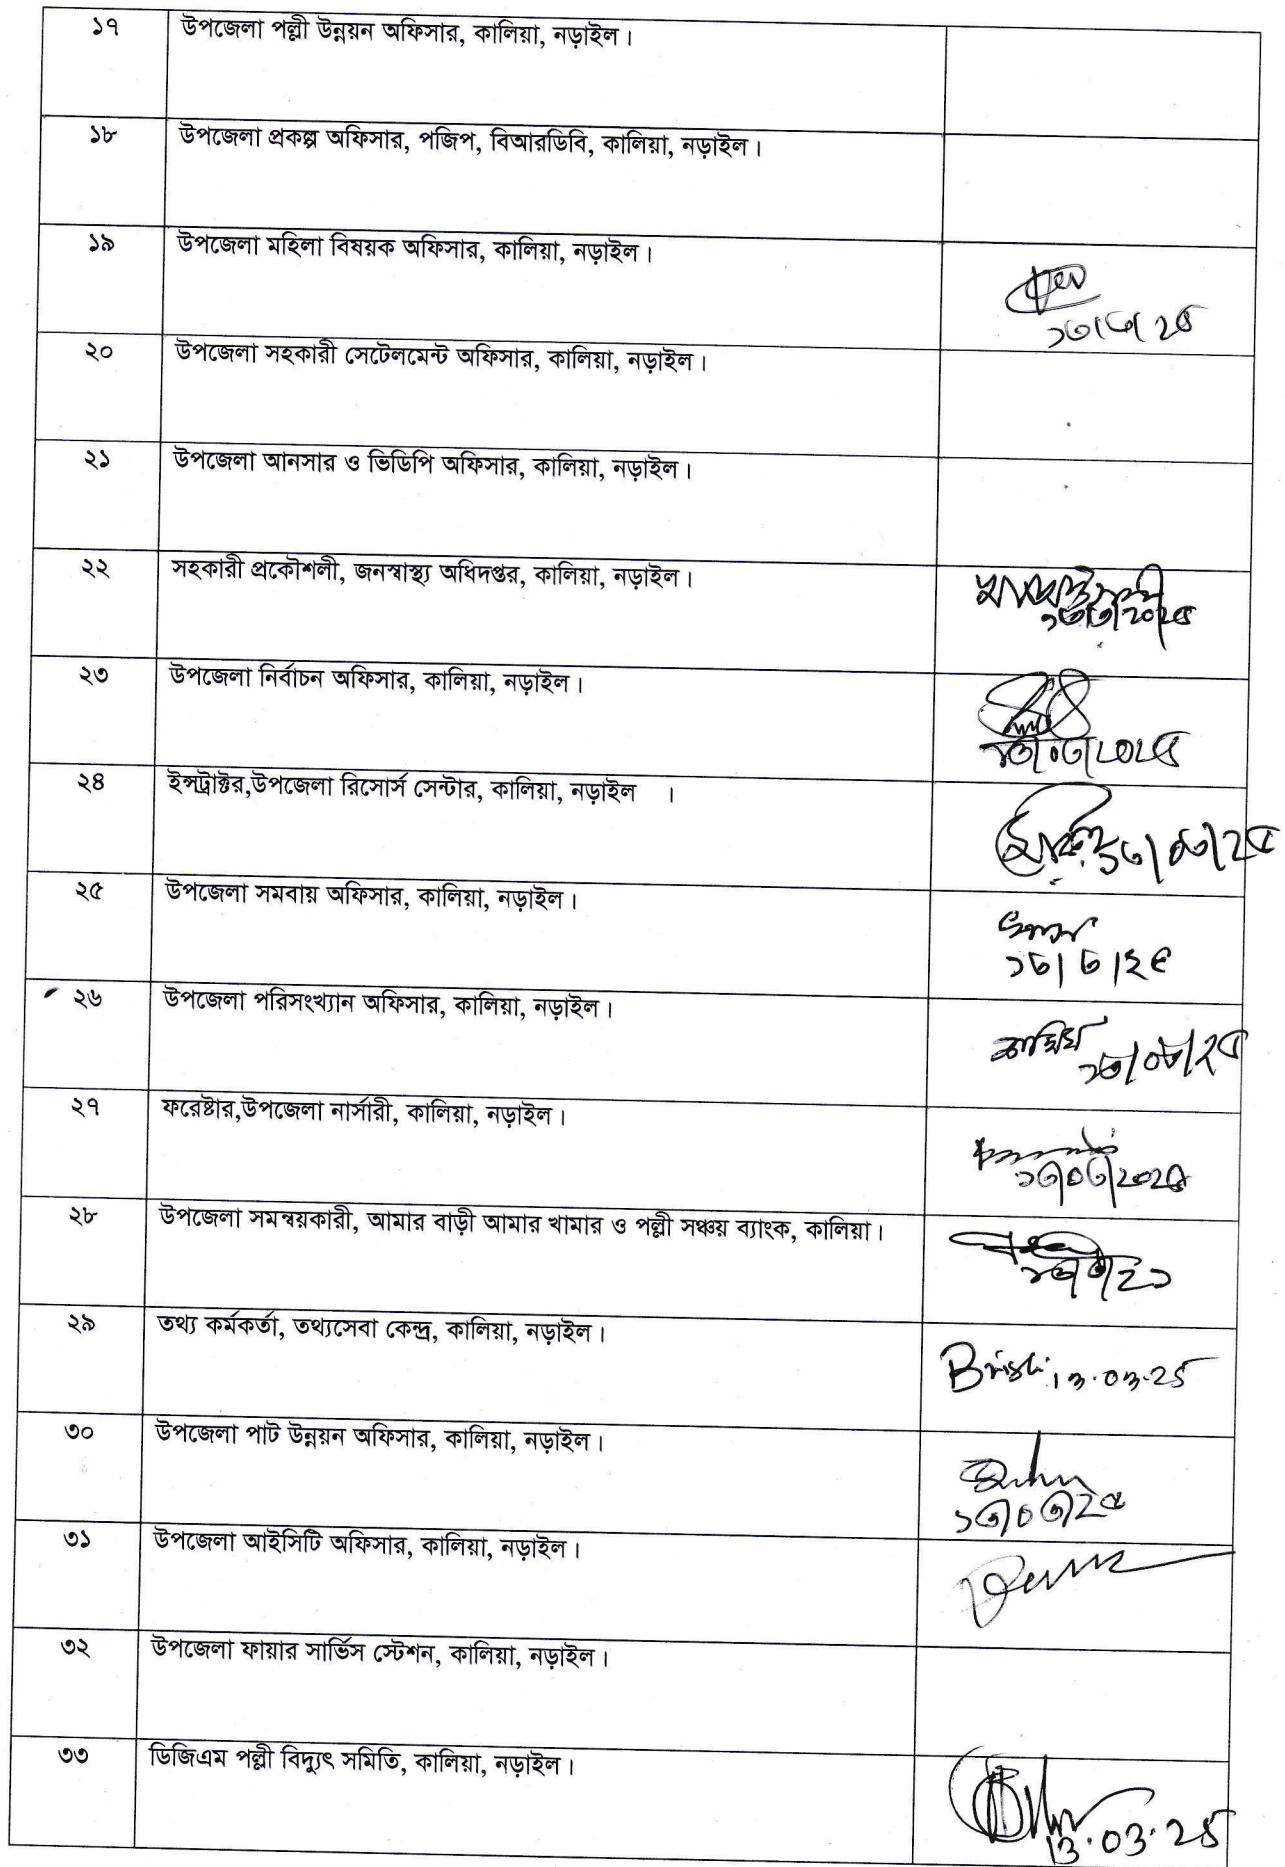 ১৭ উপজেলা পল্লী উন্নয়ন অফিসার, কালিয়া, নড়াইল।
১৮ উপজেলা প্রকল্প অফিসার, পজিপ, বিআরডিবি, কালিয়া, নড়াইল।
১৯ উপজেলা মহিলা বিষয়ক অফিসার, কালিয়া, নড়াইল।
১৩/৩/২৫
২০ উপজেলা সহকারী সেটেলমেন্ট অফিসার, কালিয়া, নড়াইল।
২১ উপজেলা আনসার ও ভিডিপি অফিসার, কালিয়া, নড়াইল।
২২ সহকারী প্রকৌশলী, জনস্বাস্থ্য অধিদপ্তর, কালিয়া, নড়াইল।
১৩/৩/২০২৫
২৩ উপজেলা নির্বাচন অফিসার, কালিয়া, নড়াইল।
১৩/০৩/২০২৫
২৪ ইন্সট্রাক্টর,উপজেলা রিসোর্স সেন্টার, কালিয়া, নড়াইল ।
১৩/০৩/২৫
২৫ উপজেলা সমবায় অফিসার, কালিয়া, নড়াইল।
১৩/৩/২৫
২৬ উপজেলা পরিসংখ্যান অফিসার, কালিয়া, নড়াইল।
১৩/০৩/২৫
২৭ ফরেষ্টার,উপজেলা নার্সারী, কালিয়া, নড়াইল।
১৩/০৩/২০২৫
২৮ উপজেলা সমন্বয়কারী, আমার বাড়ী আমার খামার ও পল্লী সঞ্চয় ব্যাংক, কালিয়া।
২৯ তথ্য কর্মকর্তা, তথ্যসেবা কেন্দ্র, কালিয়া, নড়াইল।
13.03.25
৩০ উপজেলা পাট উন্নয়ন অফিসার, কালিয়া, নড়াইল।
১৩/০৩/২৫
৩১ উপজেলা আইসিটি অফিসার, কালিয়া, নড়াইল।
৩২ উপজেলা ফায়ার সার্ভিস স্টেশন, কালিয়া, নড়াইল।
৩৩ ডিজিএম পল্লী বিদ্যুৎ সমিতি, কালিয়া, নড়াইল।
13.03.25